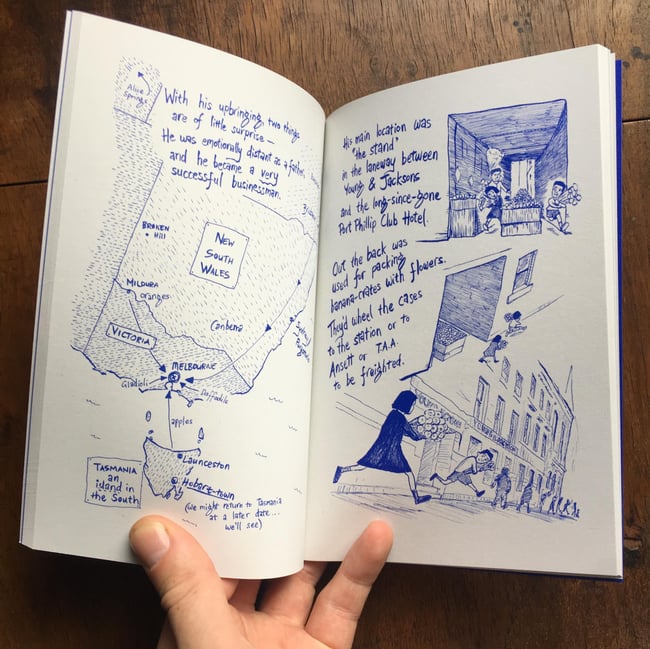 Alice
Springs
With his upbringing, two things
are of little surprise—
He was emotionally distant as a father,
and he became a very
successful businessman.
BROKEN
HILL
NEW
SOUTH
WALES
MILDURA
oranges
Canberra
VICTORIA
MELBOURNE
Gladioli
Daffodils
apples
TASMANIA
an
island in
the South
Launceston
Hobart-town
(we might return to Tasmania
at a later date...
we'll see)
His main location was
"the stand"
in the laneway between
Young & Jacksons
and the long-since-gone
Port Phillip Club Hotel.
Out the back was
used for packing
banana-crates with flowers.
They'd wheel the cases
to the station or to
Ansett or T.A.A.
to be freighted.